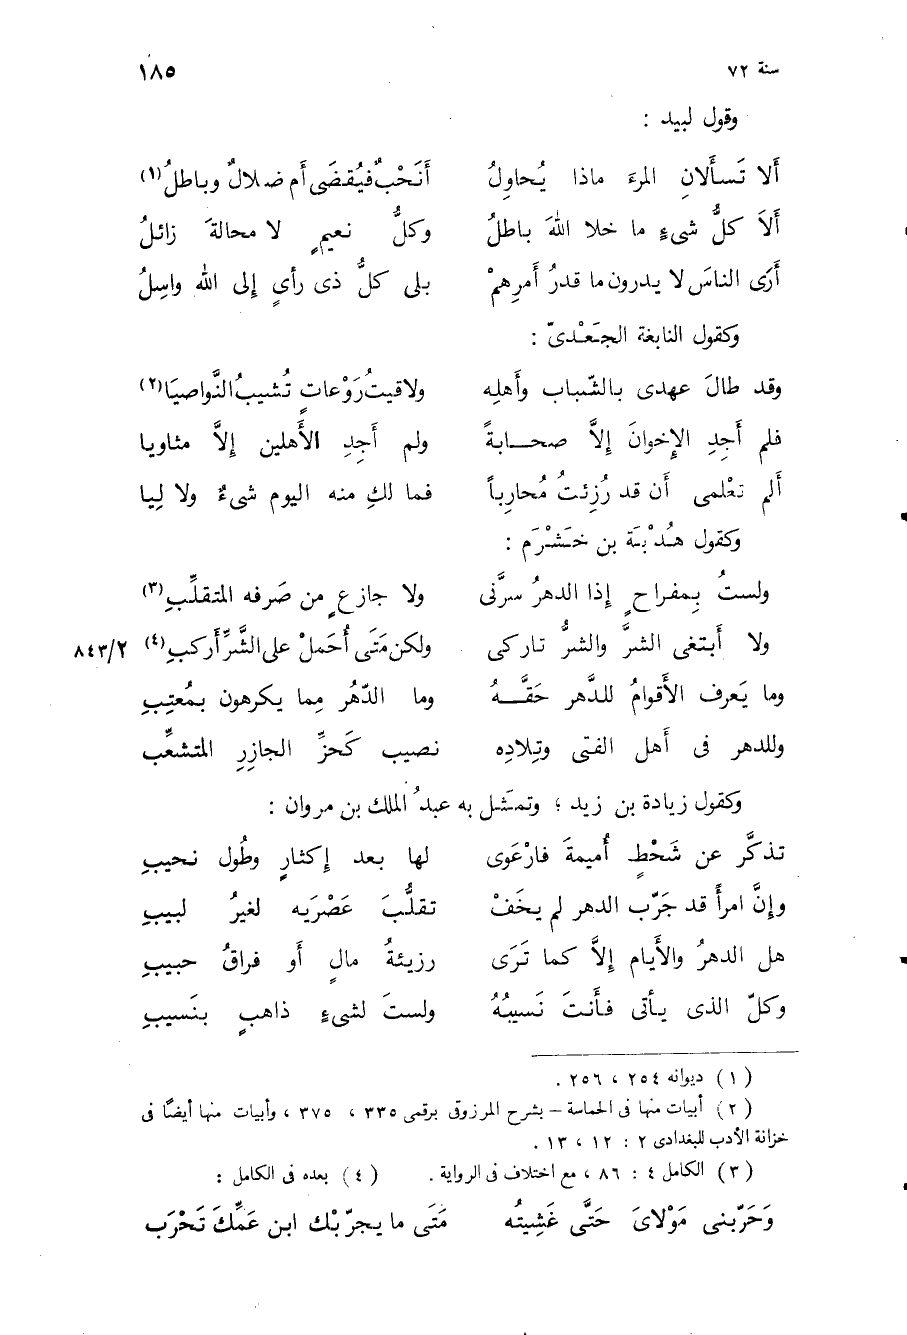 سنة ٧٢ ١٨٥
وقول لبيد :
أَلا تَسأَلانِ المرءَ ماذا يُحاوِلُ أَنَحْبٌ فيُقضَى أَم ضلالٌ وباطلُ(١)
أَلاَ كلُّ شىءٍ ما خلا اللهَ باطلُ وكلُّ نعيمٍ لا محالةَ زائلُ
أَرَى الناسَ لا يدرون ما قدرُ أَمرِهمْ بلى كلُّ ذى رأىٍ إلى الله واسِلُ
وكقول النابغة الجَعْدىّ :
وقد طالَ عهدى بالشّباب وأَهلِه ولاقيتُ رَوْعاتٍ تُشيبُ النَّواصيَا(٢)
فلم أَجِدِ الإِخوانَ إِلاَّ صحابةً ولم أَجِدِ الأَهلين إِلاَّ مثاويا
أَلم تعْلمى أَن قد رُزِئتُ مُحارباً فما لكِ منه اليوم شىءٌ ولا لِيا
وكقول هُدْبَة بن خَشْرَم :
ولستُ بِمفراحٍ إِذا الدهرُ سرَّنى ولا جازعٍ من صَرفه المتقلِّبِ(٣)
ولا أَبتغى الشرَّ والشرُّ تاركى ولكن مَتَى أُحمَلْ على الشَّرِّ أَركبِ(٤) ٨٤٣/٢
وما يَعرف الأَقوامُ للدَّهر حَقَّهُ وما الدّهُر مِما يكرهون بمُعتِبِ
وللدهر فى أَهل الفتى وتِلادِه نصيب كَحزِّ الجازِرِ المتشعِّب
وكقول زيادة بن زيد ؛ وتمثَّل به عبدُ الملك بن مروان :
تذكَّر عن شَحْطٍ أُميمةَ فارْعَوى لها بعد إِكثارٍ وطُول نحيبِ
وإِنَّ امرأً قد جَرّب الدهر لم يخَفْ تقلُّبَ عَصْرَيه لغيرُ لبيبِ
هل الدهرُ والأَيام إِلاَّ كما تَرَى رزيئةُ مالٍ أَو فراقُ حبيبِ
وكلّ الذى يأتى فأَنتَ نَسيبُهُ ولستَ لشىءٍ ذاهبٍ بنَسيبِ
(١) ديوانه ٢٥٤ ، ٢٥٦ .
(٢) أبيات منها فى الحماسة – بشرح المرزوقى برقمى ٣٣٥ ، ٣٧٥ ، وأبيات منها أيضًا فى
خزانة الأدب للبغدادى ٢ : ١٢ ، ١٣ .
(٣) الكامل ٤ : ٨٦ ، مع اختلاف فى الرواية . (٤) بعده فى الكامل :
وَحَرّبنى مَوْلاىَ حَتَّى غَشِيتُه مَتَى ما يجرّبْك ابن عَمِّكَ تَحْرَب